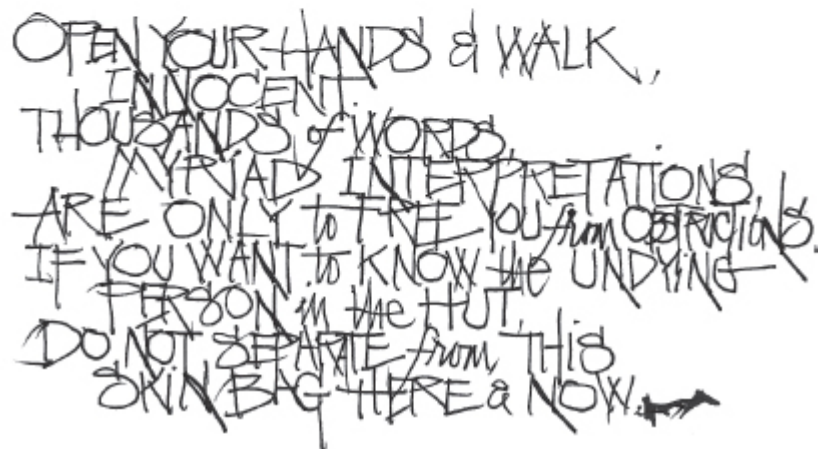 OPEN YOUR HANDS & WALK,
INNOCENT.
THOUSANDS of WORDS,
MYRIAD INTERPRETATIONS,
ARE ONLY to FREE YOU from OBSTRUCTIONS.
IF YOU WANT to KNOW the UNDYING
PERSON in the HUT,
DO NOT SEPARATE from THIS
SKIN BAG HERE & NOW.